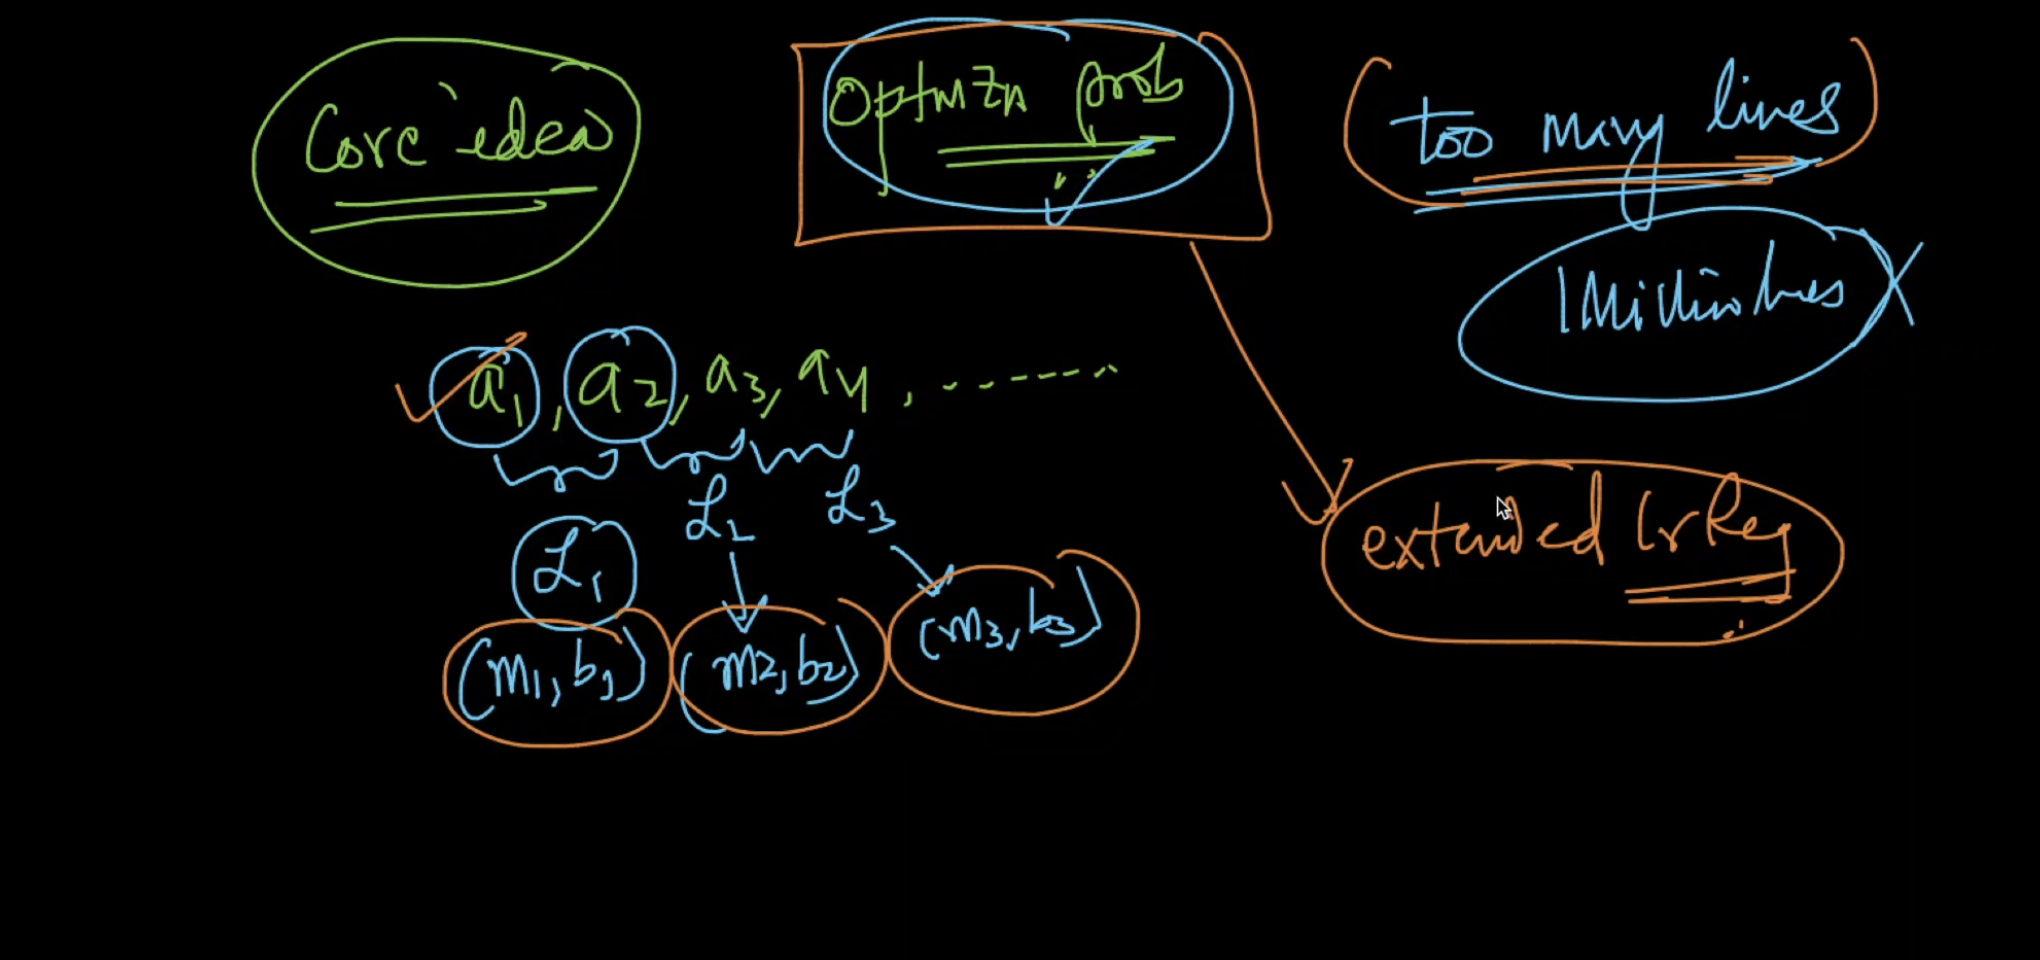 Core idea
OptmZn prob
too many lines
1 Million lines
a1, a2, a3, a4, .......
L1
L2
L3
(m1, b1)
(m2, b2)
(m3, b3)
extended Lr Reg